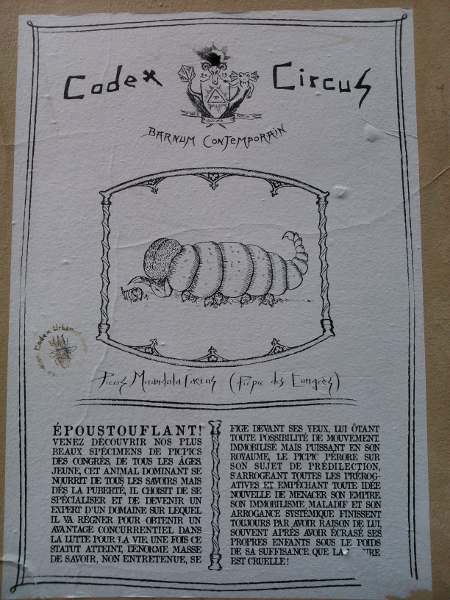 Codex Circus
BARNUM CONTEMPORAIN
Codex Urbanus
Picus Mirandola Parcus (Picpic des Congrès)
ÉPOUSTOUFLANT!
VENEZ DÉCOUVRIR NOS PLUS
BEAUX SPÉCIMENS DE PICPICS
DES CONGRÈS, DE TOUS LES ÂGES
JEUNE, CET ANIMAL DOMINANT SE
NOURRIT DE TOUS LES SAVOIRS MAIS
DÈS LA PUBERTÉ, IL CHOISIT DE SE
SPÉCIALISER ET DE DEVENIR UN
EXPERT D'UN DOMAINE SUR LEQUEL
IL VA RÉGNER POUR OBTENIR UN
AVANTAGE CONCURRENTIEL DANS
LA LUTTE POUR LA VIE. UNE FOIS CE
STATUT ATTEINT, L'ÉNORME MASSE
DE SAVOIR, NON ENTRETENUE, SE
FIGE DEVANT SES YEUX, LUI ÔTANT
TOUTE POSSIBILITÉ DE MOUVEMENT.
IMMOBILISÉ MAIS PUISSANT EN SON
ROYAUME, LE PICPIC PÉRORE SUR
SON SUJET DE PRÉDILECTION,
S'ARROGEANT TOUTES LES PRÉROG-
ATIVES ET EMPÊCHANT TOUTE IDÉE
NOUVELLE DE MENACER SON EMPIRE.
SON IMMOBILISME MALADIF ET SON
ARROGANCE SYSTÉMIQUE FINISSENT
TOUJOURS PAR AVOIR RAISON DE LUI,
SOUVENT APRÈS AVOIR ÉCRASÉ SES
PROPRES ENFANTS SOUS LE POIDS
DE SA SUFFISANCE QUE LA
EST CRUELLE!